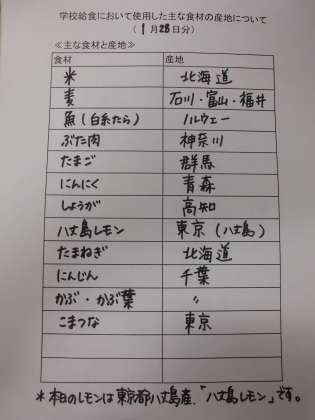 学校給食において使用した主な食材の産地について
（1月28日分）
≪主な食材と産地≫
食材 産地
米 北海道
麦 石川・富山・福井
魚（白糸たら） ノルウェー
ぶた肉 神奈川
たまご 群馬
にんにく 青森
しょうが 高知
八丈島レモン 東京（八丈島）
たまねぎ 北海道
にんじん 千葉
かぶ・かぶ葉 〃
こまつな 東京
＊本日のレモンは東京都八丈島産、「八丈島レモン」です。